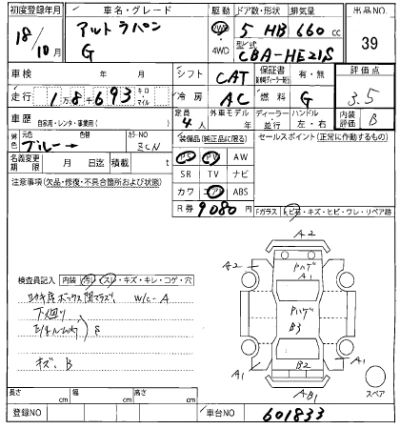 初度登録年月 車名・グレード 駆動 ドア数・形状 排気量 出品NO
18/10月 アルトラパン 2WD 5 HB 660 cc 39
G 4WD 型式 CBA-HE21S
車検 年 月 シフト CAT 保証書 有・無 評価点
走行 1万8千693 キロ・マイル 冷房 AC 燃料 G 3.5
車歴 自家用・レンタ・事業用( ) 定員 4人 外車モデル 年 ディーラー 並行 ハンドル 左・右 内装評価 B
色 元色 色替 カラーNO 装備品(純正品に限る) セールスポイント(正常に動作するもの)
ブルー→ ZCN PS PW AW
名義変更期限 月 日迄 積載 t SR TV ナビ
注意事項(欠品・修復・不具合箇所および状態) カワ エアB ABS
R券 9080円
Fガラス トビ・キズ・ヒビ・ワレ・リペア跡
A2
A2 Pハゲ A1
PハゲB3
A1 B2 A1
AB1
スペア
検査員記入 内装 汚・スレ・キズ・キレ・コゲ・穴
W/C-A
下廻り
サビ
キズ、B
長さ cm 幅 cm 高さ cm
登録NO 車台NO 601833